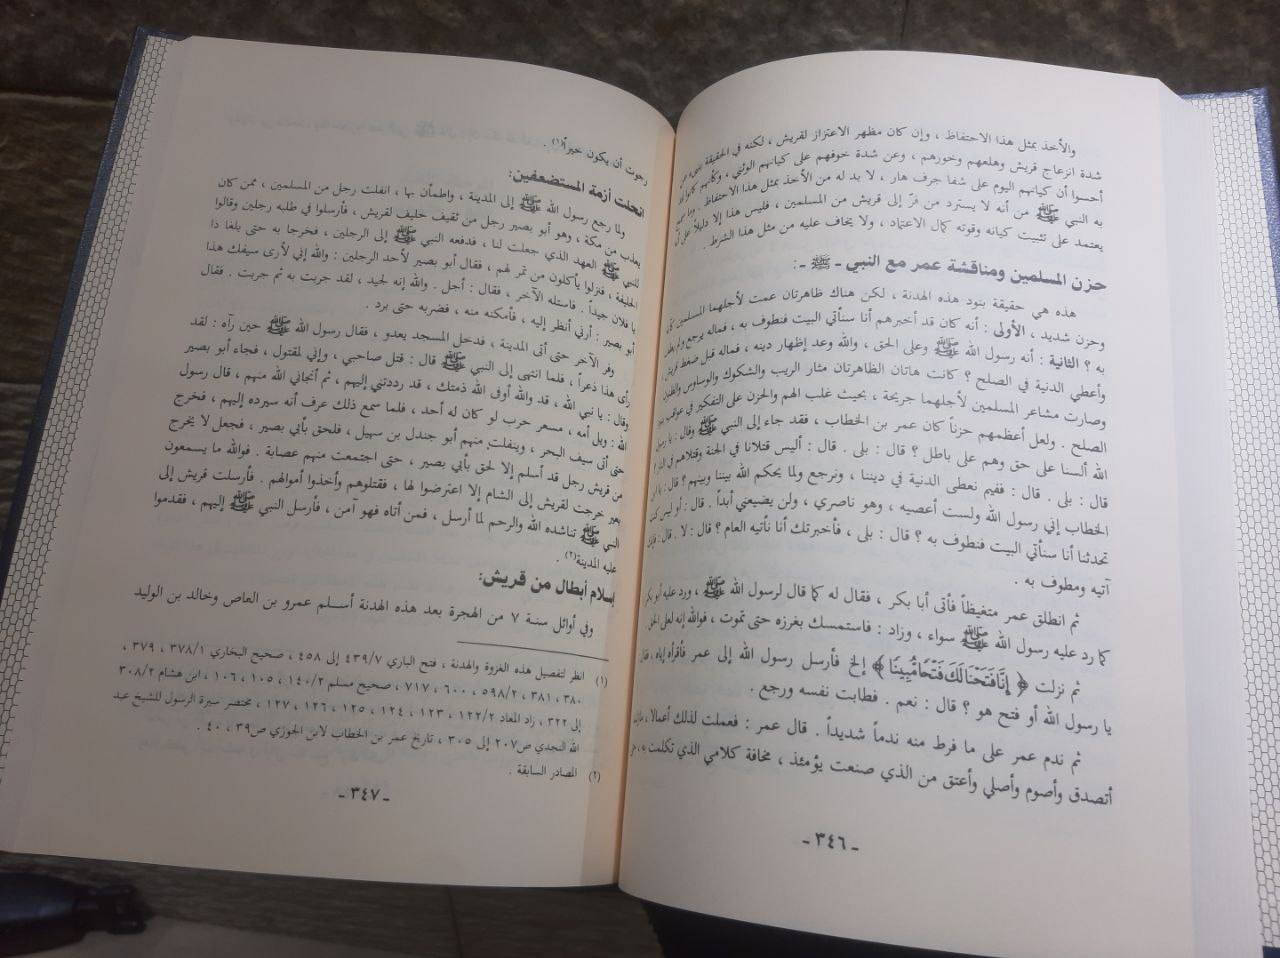 والأخذ بمثل هذا الاحتفاظ ، وإن كان مظهر الاعتزاز لقريش ، لكنه في الحقيقة ينبىء عن
شدة انزعاج قريش وهلعهم وخورهم ، وعن شدة خوفهم على كيانهم الوثني ، وكأنهم كانوا قد
أحسوا أن كيانهم اليوم على شفا جرف هار ، لا بد له من الأخذ بمثل هذا الاحتفاظ . وما سمح
به النبي ﷺ من أنه لا يسترد من فرّ إلى قريش من المسلمين ، فليس هذا إلا دليلاً على أنه
يعتمد على تثبيت كيانه وقوته كمال الاعتماد ، ولا يخاف عليه من مثل هذا الشرط .
حزن المسلمين ومناقشة عمر مع النبي ـ ﷺ ـ :
هذه هي حقيقة بنود هذه الهدنة ، لكن هناك ظاهرتان عمت لأجلهما المسلمين كآبة
وحزن شديد ، الأولى : أنه كان قد أخبرهم أنا سنأتي البيت فنطوف به ، فماله يرجع ولم يطف
به ؟ الثانية : أنه رسول الله ﷺ وعلى الحق ، والله وعد إظهار دينه ، فماله قبل ضغط قريش
وأعطى الدنية في الصلح ؟ كانت هاتان الظاهرتان مثار الريب والشكوك والوساوس والظنون
وصارت مشاعر المسلمين لأجلهما جريحة ، بحيث غلب الهم والحزن على التفكير في عواقب بنود
الصلح . ولعل أعظمهم حزناً كان عمر بن الخطاب ، فقد جاء إلى النبي ﷺ وقال : يا رسول
الله ألسنا على حق وهم على باطل ؟ قال : بلى . قال : أليس قتلانا في الجنة وقتلاهم في النار ؟
قال : بلى . قال : ففيم نعطى الدنية في ديننا ، ونرجع ولما يحكم الله بيننا وبينهم ؟ قال : يا ابن
الخطاب إني رسول الله ولست أعصيه ، وهو ناصري ، ولن يضيعني أبداً . قال : أو ليس كنت
تحدثنا أنا سنأتي البيت فنطوف به ؟ قال : بلى ، فأخبرتك أنا نأتيه العام ؟ قال : لا . قال : فإنك
آتيه ومطوف به .
ثم انطلق عمر متغيظاً فأتى أبا بكر ، فقال له كما قال لرسول الله ﷺ ، ورد عليه أبو بكر
كما رد عليه رسول الله ﷺ سواء ، وزاد : فاستمسك بغرزه حتى تموت ، فوالله إنه لعلى الحق
ثم نزلت ﴿ إِنَّا فَتَحْنَا لَكَ فَتْحًا مُّبِينًا ﴾ إلخ فأرسل رسول الله إلى عمر فأقرأه إياه ، فقال
يا رسول الله أو فتح هو ؟ قال : نعم . فطابت نفسه ورجع .
ثم ندم عمر على ما فرط منه ندماً شديداً . قال عمر : فعملت لذلك أعمالا ، مازلت
أتصدق وأصوم وأصلي وأعتق من الذي صنعت يؤمئذ ، مخافة كلامي الذي تكلمت به ، حتى
ـ ٣٤٦ ـ
رجوت أن يكون خيراً(١) .
انحلت أزمة المستضعفين:
ولما رجع رسول الله ﷺ إلى المدينة ، واطمأن بها ، انفلت رجل من المسلمين ، ممن كان
يعذب من مكة ، وهو أبو بصير رجل من ثقيف حليف لقريش ، فأرسلوا في طلبه رجلين وقالوا
للنبي ﷺ العهد الذي جعلت لنا ، فدفعه النبي ﷺ إلى الرجلين ، فخرجا به حتى بلغا ذا
الحليفة ، فنزلوا يأكلون من تمر لهم ، فقال أبو بصير لأحد الرجلين : والله إني لأرى سيفك هذا
يا فلان جيداً . فاستله الآخر ، فقال : أجل . والله إنه لجيد ، لقد جربت به ثم جربت . فقال
أبو بصير : أرني أنظر إليه ، فأمكنه منه ، فضربه حتى برد .
وفر الآخر حتى أتى المدينة ، فدخل المسجد يعدو ، فقال رسول الله ﷺ حين رآه : لقد
رأى هذا ذعراً ، فلما انتهى إلى النبي ﷺ قال : قتل صاحبي ، وإني لمقتول ، فجاء أبو بصير
وقال : يا نبي الله ، قد والله أوفى الله ذمتك ، قد رددتني إليهم ، ثم أنجاني الله منهم ، قال رسول
الله : ويل أمه ، مسعر حرب لو كان له أحد ، فلما سمع ذلك عرف أنه سيرده إليهم ، فخرج
حتى أتى سيف البحر ، وينفلت منهم أبو جندل بن سهيل ، فلحق بأبي بصير ، فجعل لا يخرج
من قريش رجل قد أسلم إلا لحق بأبي بصير ، حتى اجتمعت منهم عصابة . فوالله ما يسمعون
بعير خرجت لقريش إلى الشام إلا اعترضوا لها ، فقتلوهم وأخذوا أموالهم . فأرسلت قريش إلى
النبي ﷺ تناشده الله والرحم لما أرسل ، فمن أتاه فهو آمن ، فأرسل النبي ﷺ إليهم ، فقدموا
عليه المدينة(٢) .
إسلام أبطال من قريش:
وفي أوائل سنة ٧ من الهجرة بعد هذه الهدنة أسلم عمرو بن العاص وخالد بن الوليد
(١) انظر لتفصيل هذه الغزوة والهدنة ، فتح الباري ٤٣٩/٧ إلى ٤٥٨ ، صحيح البخاري ٣٧٨/١ ، ٣٧٩ ،
٣٨٠ ، ٣٨١ ، ٥٩٨/٢ ، ٦٠٠ ، ٧١٧ ، صحيح مسلم ١٤٠/٢ ، ١٠٥ ، ١٠٦ ، ابن هشام ٣٠٨/٢
إلى ٣٢٢ ، زاد المعاد ١٢٢/٢ ، ١٢٣ ، ١٢٤ ، ١٢٥ ، ١٢٦ ، ١٢٧ ، مختصر سيرة الرسول للشيخ عبد
الله النجدي ص٢٠٧ إلى ٣٠٥ ، تاريخ عمر بن الخطاب لابن الجوزي ص٣٩ ، ٤٠ .
(٢) المصادر السابقة .
ـ ٣٤٧ ـ